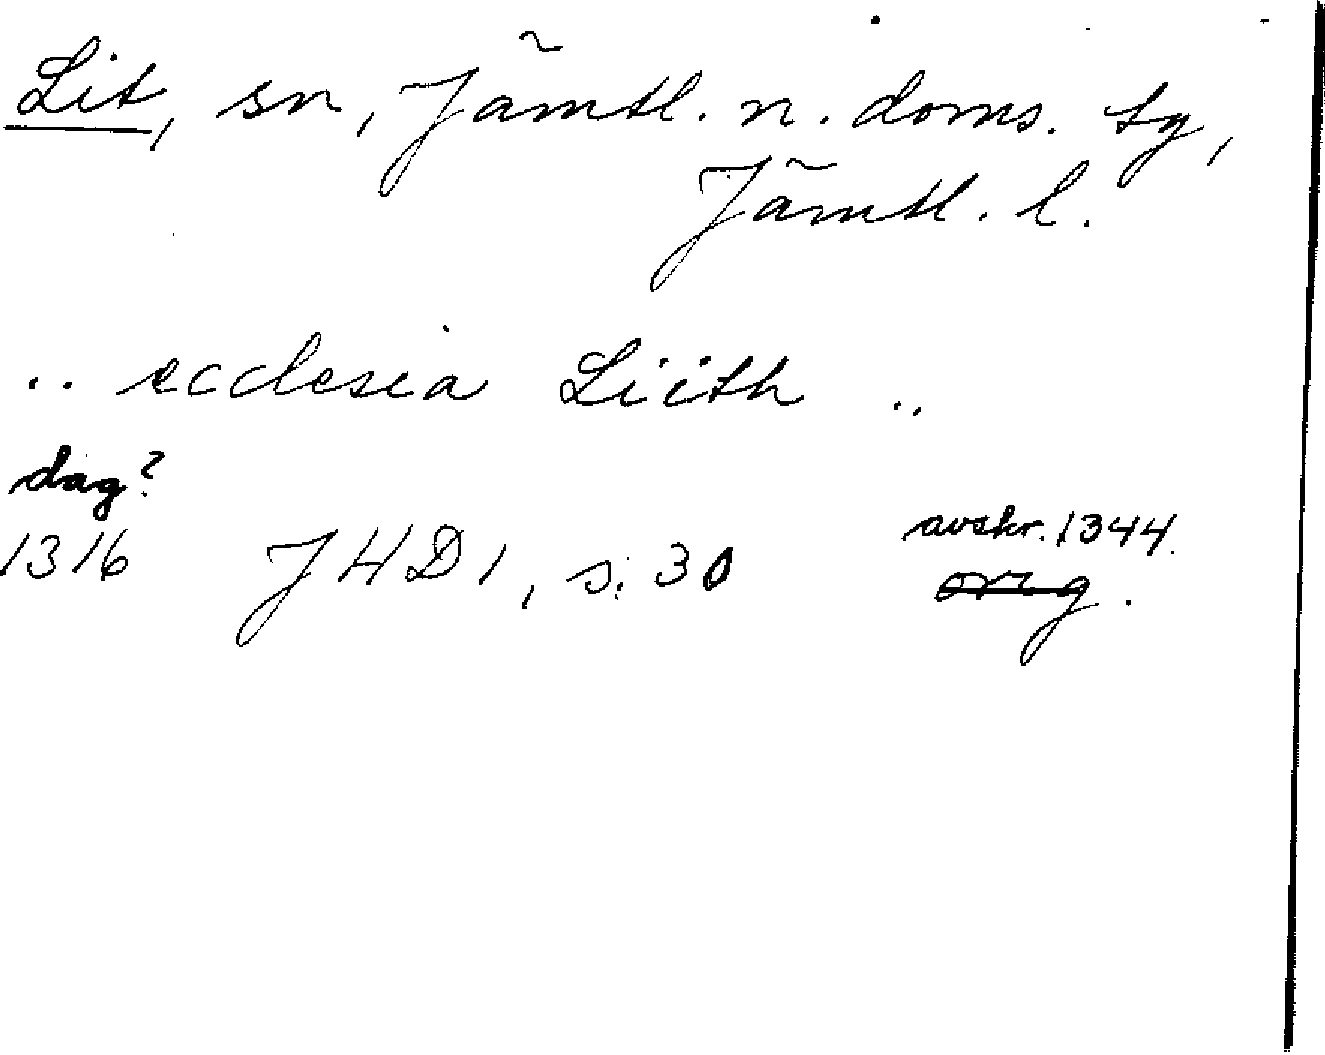 Lit, sn, Jämtl. n. doms. tg,
Jämtl. l.
.. ecclesia Liith ..
dag?
1316 JHD1, s. 30 avskr. 1344.
org.